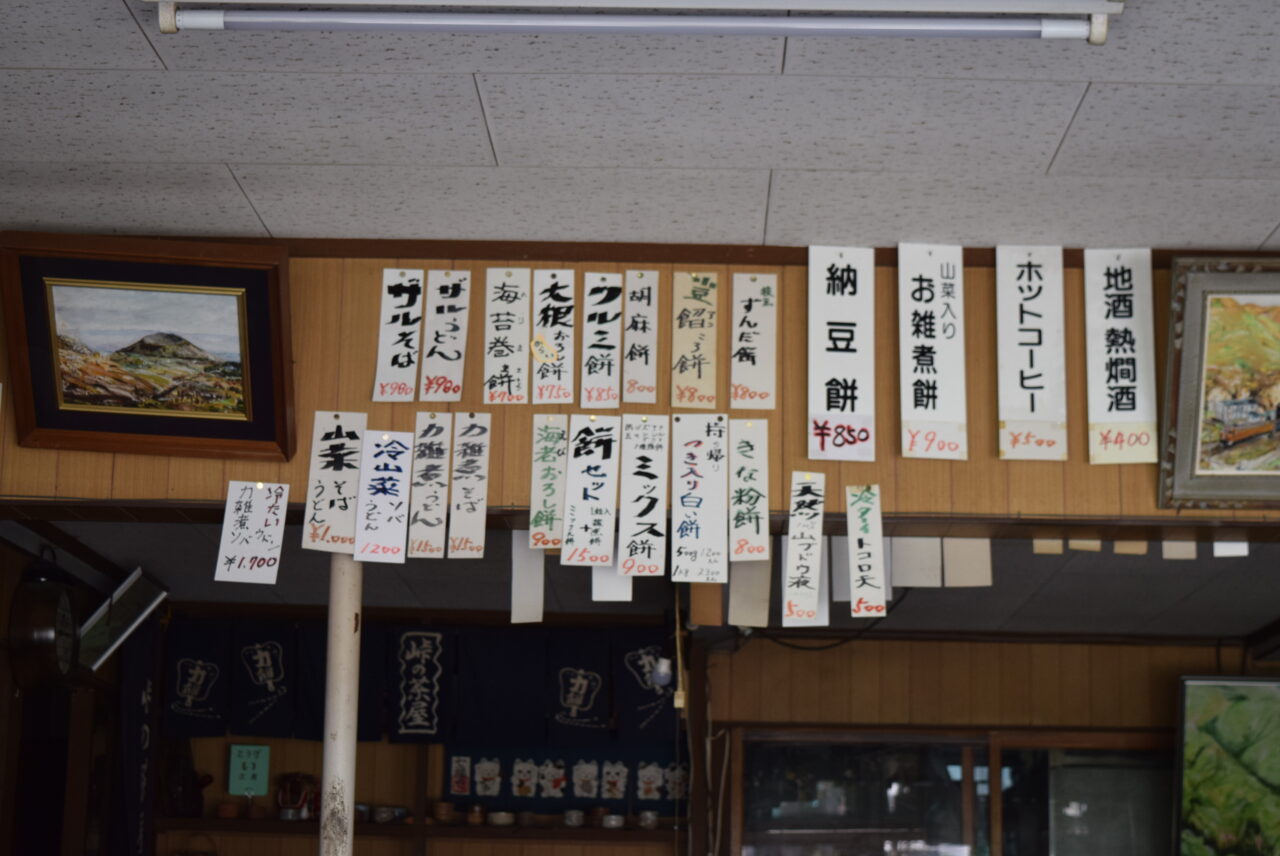 ザルそば
¥980
ザルうどん
¥980
海苔巻き餅
¥700
大根おろし餅
¥750
クルミ餅
¥850
胡麻餅
800
豆餡ころ餅
¥800
枝豆
すんだ餅
¥800
納豆餅
¥850
山菜入り
お雑煮餅
¥900
ホットコーヒー
¥500
地酒 熱燗酒
¥400
冷たい
力雑煮
ウドン
ソバ
¥1,700
山菜
そば
うどん
¥1,000
冷山菜
ソバ
うどん
1200
力雑煮うどん
力雑煮そば
海老おろし餅
900
餅セット
+
雑煮餅
1500
ミックス餅
900
持ち帰り
つき入り白い餅
500g 1200
1kg 2300
きな粉餅
800
天然
山ブドウ液
500
トコロ天
500
峠の茶屋
力餅
力餅
力餅